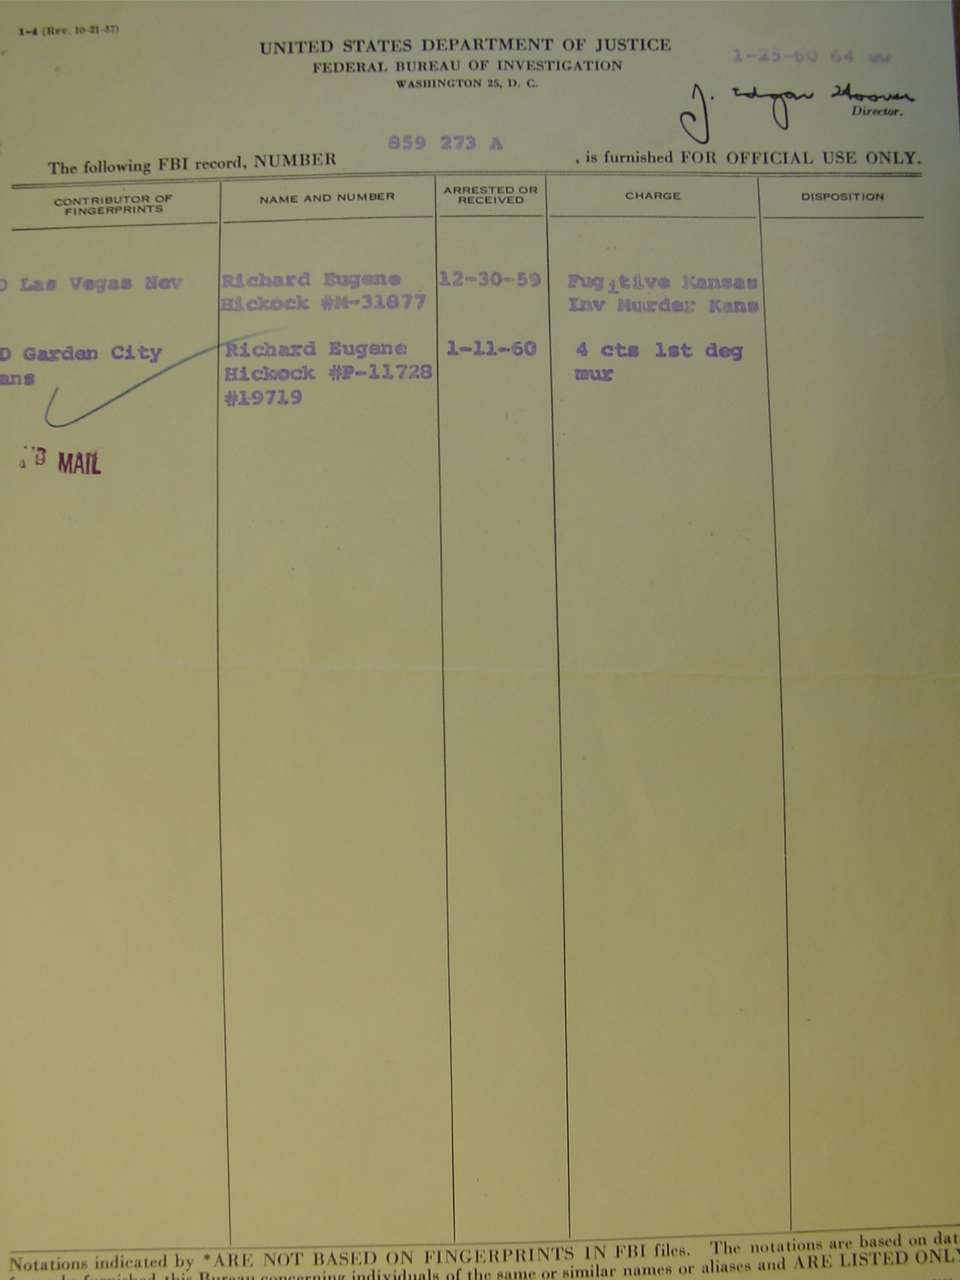 1-4 (Rev. 10-21-57)
UNITED STATES DEPARTMENT OF JUSTICE
FEDERAL BUREAU OF INVESTIGATION
WASHINGTON 25, D. C.
1-25-60 64
J. Edgar Hoover
Director.
859 273 A
The following FBI record, NUMBER , is furnished FOR OFFICIAL USE ONLY.
CONTRIBUTOR OF FINGERPRINTS NAME AND NUMBER ARRESTED OR RECEIVED CHARGE DISPOSITION
D Las Vegas Nev Richard Eugene 12-30-59 Fugitive Kansas
Hickock #M-31877 Inv Murder Kans
D Garden City Richard Eugene 1-11-60 4 cts 1st deg
ans Hickock #P-11728 mur
#19719
MAIL
Notations indicated by *ARE NOT BASED ON FINGERPRINTS IN FBI files. The notations are based on dat
furnished this Bureau concerning individuals of the same or similar names or aliases and ARE LISTED ONLY